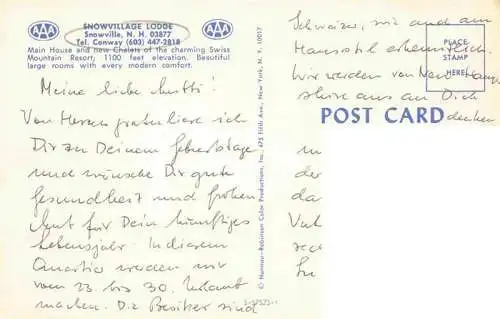 SNOWVILLAGE LODGE
Snowville, N. H. 03877
Tel. Conway (603) 447-2818
Main House and new Chalets of the charming Swiss
Mountain Resort; 1100 feet elevation. Beautiful
large rooms with every modern comfort.
AAA
AAA
Meine liebe Mutti!
Von Herzen gratuliere ich
Dir zu Deinem Geburtstage
und wünsche Dir gute
Gesundheit und frohen
Mut für Dein künftiges
Lebensjahr. In diesem
Quartier werden wir
vom 23. bis 30. Urlaub
machen. Die Besitzer sind
© Hannau-Robinson Color Productions, Inc., 475 Fifth Ave., New York, N. Y. 10017
S-57523-1
Schweizer, wie auch am
Hausstil erkenntlich.
Wir werden von New Hamp-
shire aus an Dich
denken
PLACE
STAMP
HERE
POST CARD
der
da